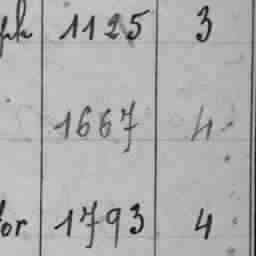 1125 3
1667 4
or 1793 4